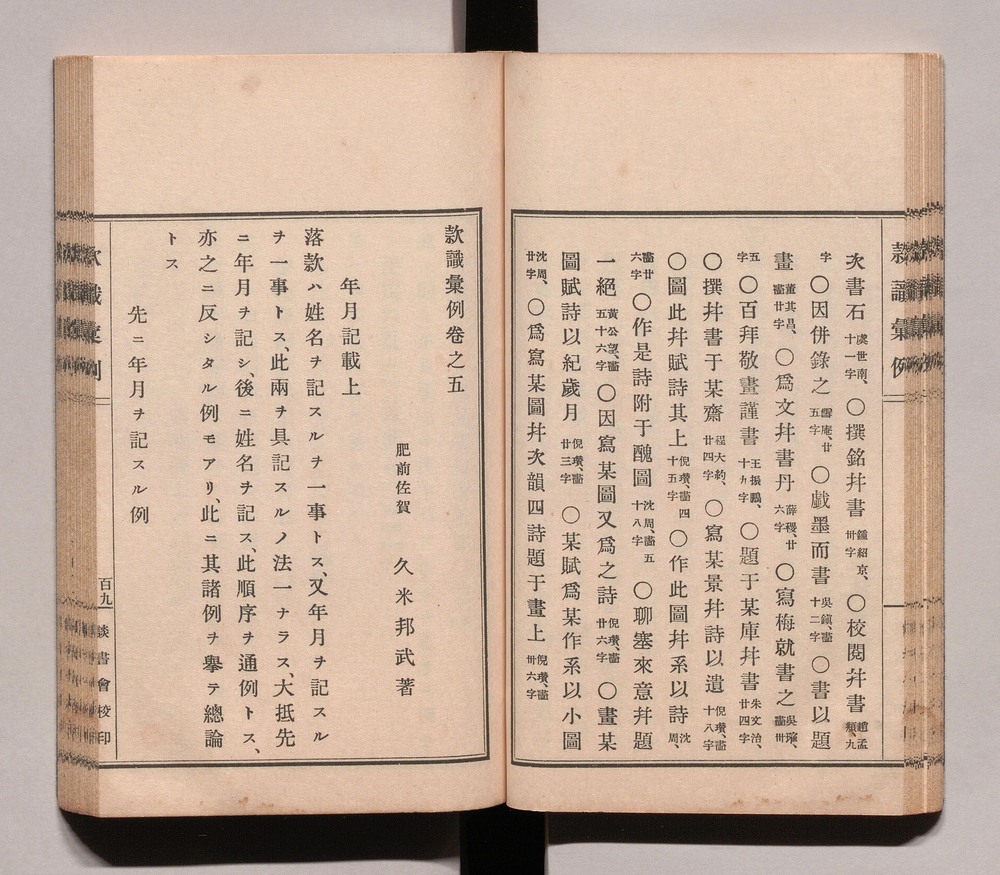 次書石 虞世南、十一字 ○撰銘幷書 鍾紹京、卅字 ○校閱幷書 趙孟頫、九
字 ○因併錄之 五字 ○戯墨而書 吳鎭、畵十二字 ○書以題
畫 董其昌、畵廿字 ○爲文幷書丹 薛稷、廿六字 ○寫梅就書之 吳瓘、畵卅
五字 ○百拜敬畫謹書 王振鵬、十九字 ○題于某庫幷書 朱文治、廿四字
○撰幷書于某齋 程大約、廿四字 ○寫某景幷詩以遺 倪瓚、畵十八字
○圖此幷賦詩其上 倪瓚、畵四十五字 ○作此圖幷系以詩 沈周、
畵廿六字 ○作是詩附于醜圖 沈周、畵五十八字 ○聊塞來意幷題
一絕 黃公望、畵五十六字 ○因寫某圖又爲之詩 倪瓚、畵廿六字 ○畫某
圖賦詩以紀歲月 倪瓚、畵廿三字 ○某賦爲某作系以小圖
沈周、廿字 ○爲寫某圖幷次韻四詩題于畫上 倪瓚、畵卅六字
款識彙例
款識彙例卷之五
肥前佐賀 久米邦武著
年月記載上
落款ハ姓名ヲ記スルヲ一事トス、又年月ヲ記スル
ヲ一事トス、此兩ヲ具記スルノ法一ナラス、大抵先
ニ年月ヲ記シ、後ニ姓名ヲ記ス、此順序ヲ通例トス、
亦之ニ反シタル例モアリ、此ニ其諸例ヲ擧テ總論
トス
先ニ年月ヲ記スル例
款識彙例
百九
談書會校印